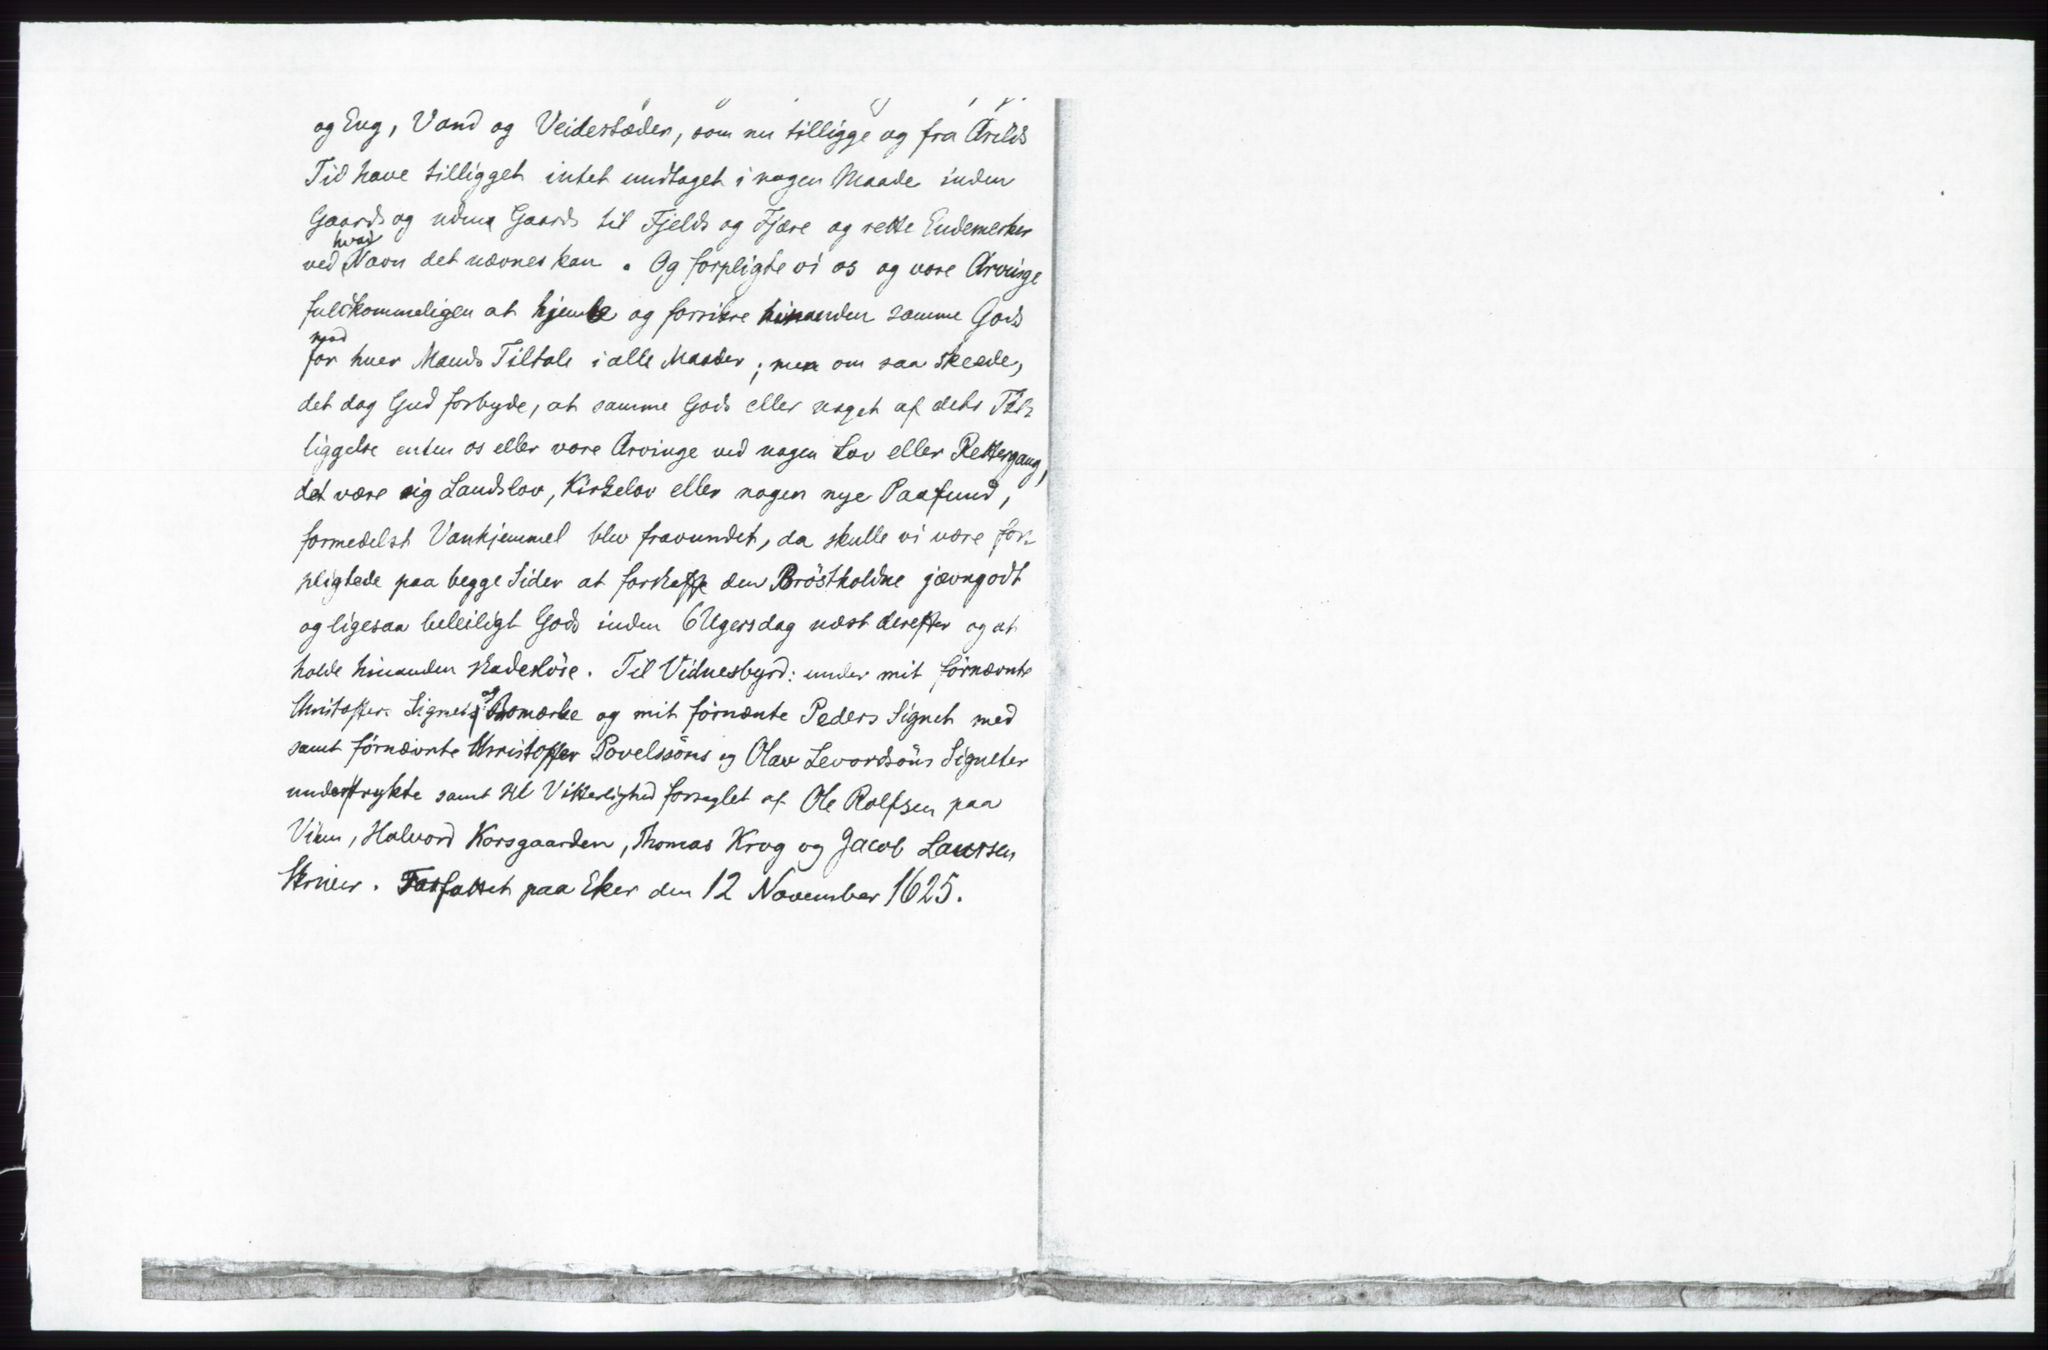 og Eng, Vand og Veidestæder, som nu tilligge og fra Arilds
Tid have tilligget intet undtaget i nogen Maade inden
Gaards og uden Gaards til Fjelds og Fjære og rette Endemerker
ved hvad Navn det nævnes kan. Og forpligte vi os og vore Arvinge
fuldkommeligen at hjemle og forsikre hinanden samme Gods
mod hver Mands Tiltale i alle Maader; men om saa skeede,
det dog Gud forbyde, at samme Gods eller noget af dets Til-
liggelse enten os eller vore Arvinge ved nogen Lov eller Rettergang,
det være sig Landslov, Kirkelov eller nogen nye Paafund,
formedelst Vanhjemmel blev fravundet, da skulle vi være for-
pligtede paa begge Sider at forskaffe den Bröstholdne jævngodt
og ligesaa beleiligt Gods inden 6 Ugersdag næst derefter og at
holde hinanden skadeslöse. Til Vidnesbyrd: under mit förnævnte
Christoffers Signet og Bomærke og mit förnænte Peders Signet med
samt förnævnte Christoffer Povelssöns og Olav Levordsöns Signeter
undertrykte samt til Vitterlighed forseglet af Ole Rolfsen paa
Viim, Halvord Korsgaarden, Thomas Krog og Jacob Laursen
Skriver. Forfattet paa Eker den 12 November 1625.